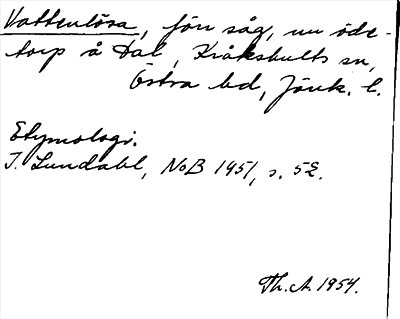 Vattenlösa, förr såg, nu öde-
torp å Dal, Kråkshults sn,
Östra hd, Jönk. l.
Etymologi.
I. Lundahl, NoB 1951, s. 52.
Th. A. 1954.